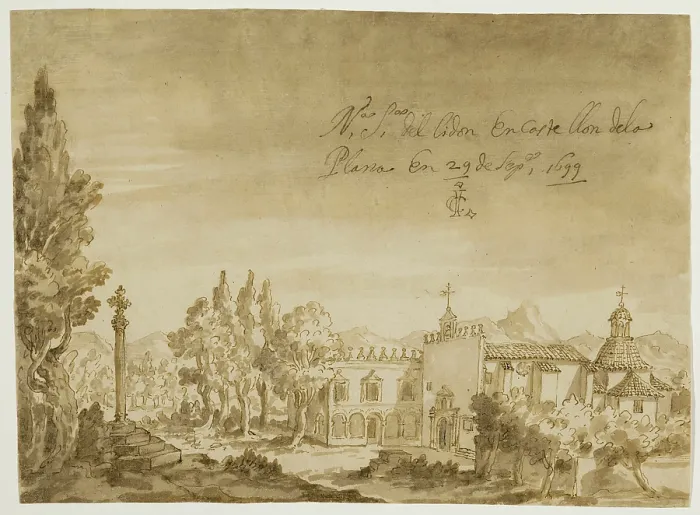 Nᵃ, Sᵃ, del lidon En Caste llon dela
Plana En 29 de Sepᵉ, 1699